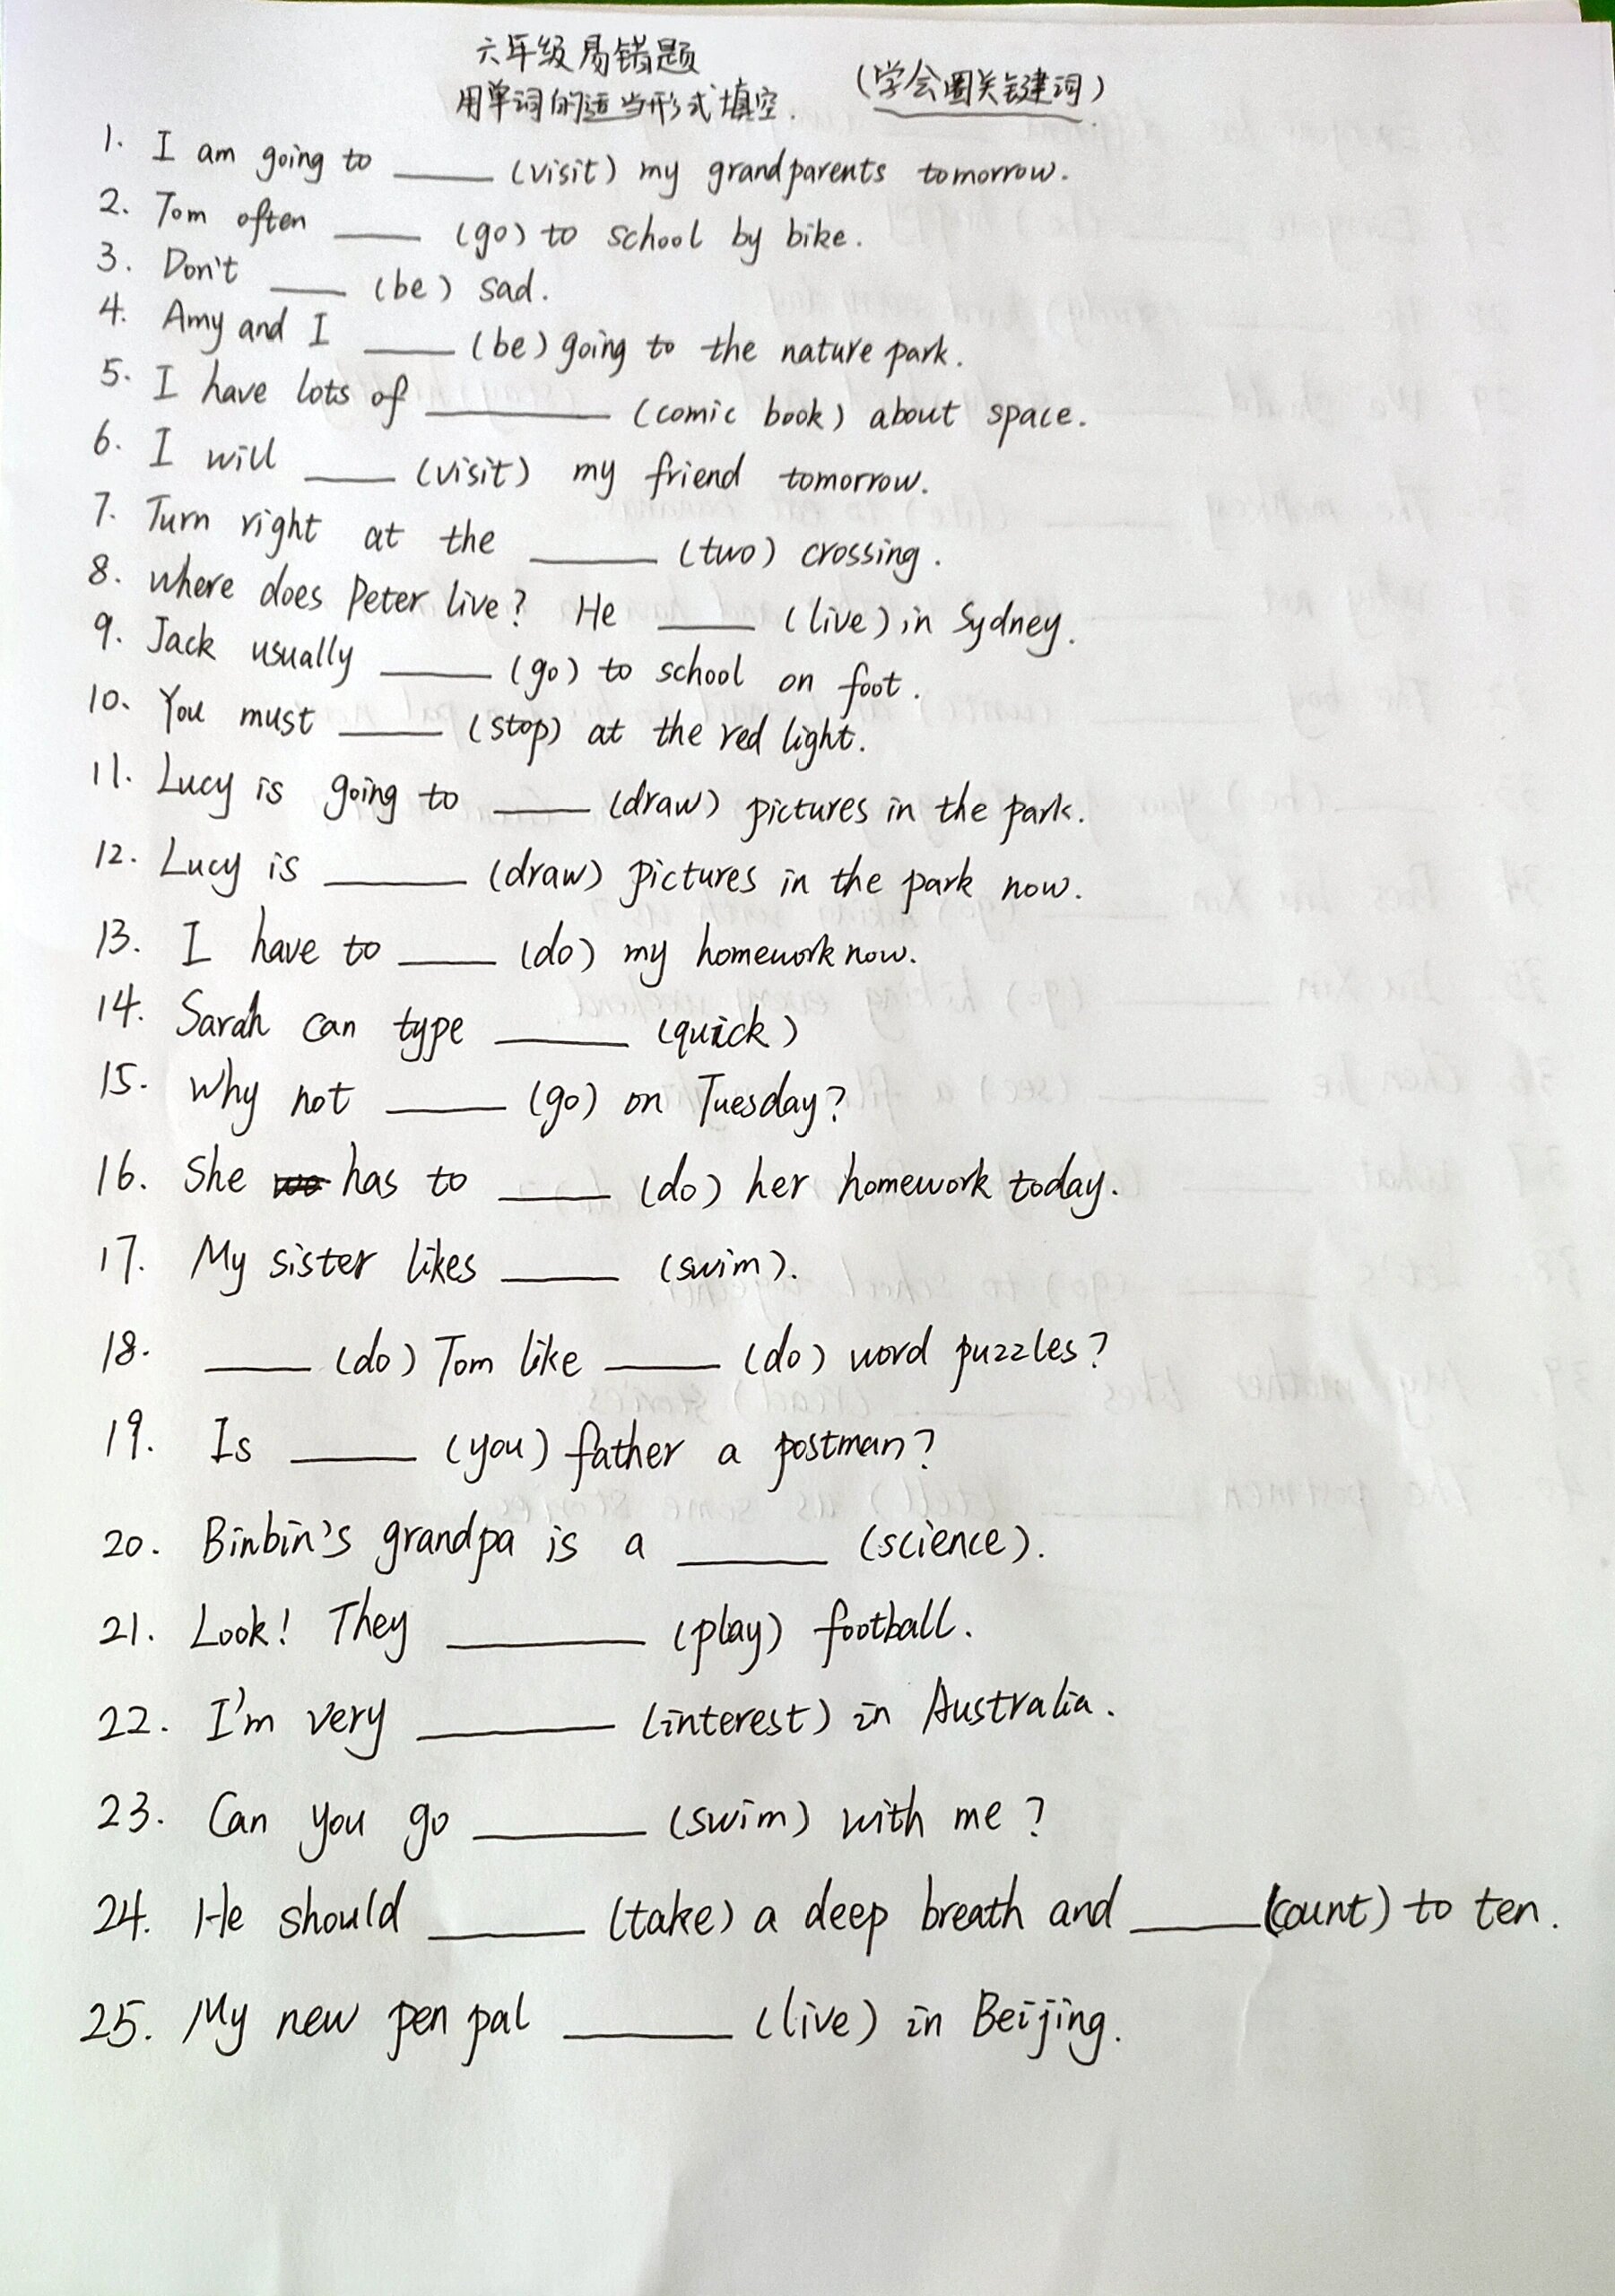 六年级易错题
用单词的适当形式填空. (学会圈关键词)
1. I am going to ____ (visit) my grandparents tomorrow.
2. Tom often ____ (go) to school by bike.
3. Don't ____ (be) sad.
4. Amy and I ____ (be) going to the nature park.
5. I have lots of ________ (comic book) about space.
6. I will ____ (visit) my friend tomorrow.
7. Turn right at the _____ (two) crossing.
8. Where does Peter live? He ____ (live) in Sydney.
9. Jack usually _____ (go) to school on foot.
10. You must ____ (stop) at the red light.
11. Lucy is going to ____ (draw) pictures in the park.
12. Lucy is ______ (draw) pictures in the park now.
13. I have to ____ (do) my homework now.
14. Sarah can type _____ (quick)
15. Why not _____ (go) on Tuesday?
16. She has to _____ (do) her homework today.
17. My sister likes _____ (swim).
18. _____ (do) Tom like _____ (do) word puzzles?
19. Is _____ (you) father a postman?
20. Binbin's grandpa is a ______ (science).
21. Look! They ________ (play) football.
22. I'm very ________ (interest) in Australia.
23. Can you go _______ (swim) with me?
24. He should ______ (take) a deep breath and _____ (count) to ten.
25. My new pen pal _______ (live) in Beijing.